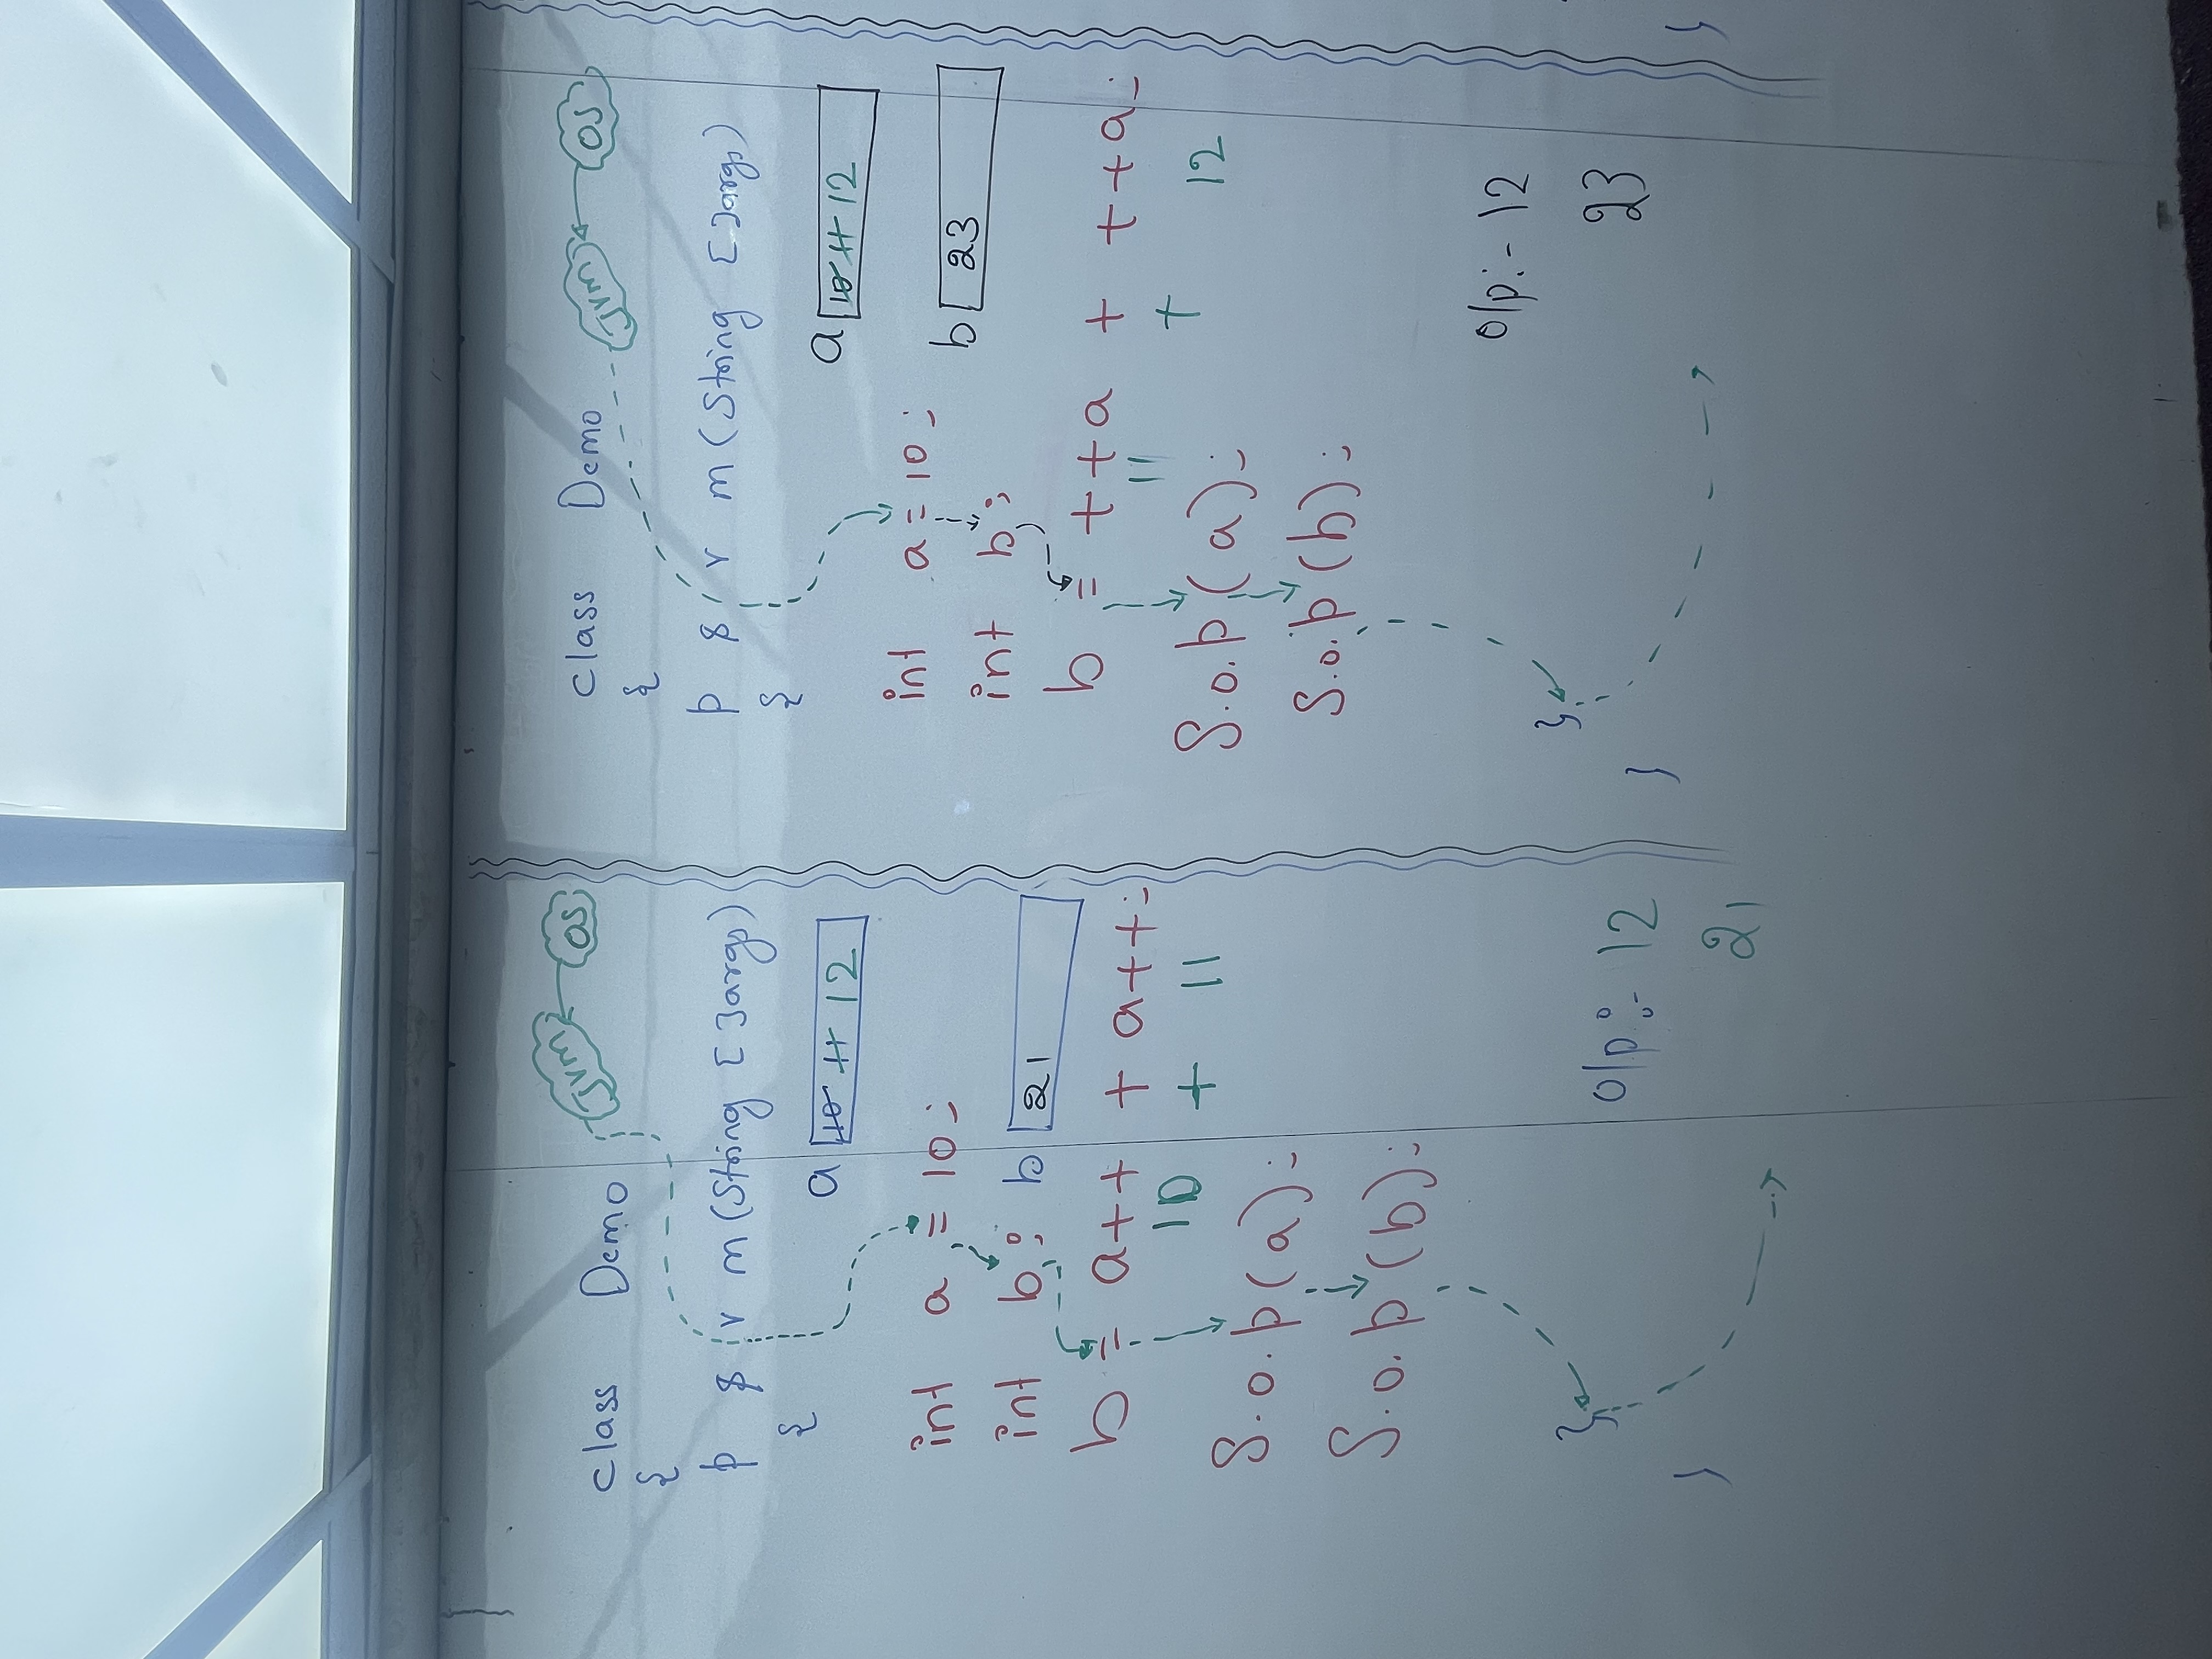 class Demo JVM OS
{
p s v m (String [ ] args)
{
a 10 11 12
int a = 10;
int b; b 21
b = a++ + a++;
10 + 11
S.o.p(a);
S.o.p(b);
}
o/p:- 12
21
}
class Demo JVM OS
{
p s v m (String [ ] args)
{
a 10 11 12
int a = 10;
b 23
int b;
b = ++a + ++a;
11 + 12
S.o.p(a);
S.o.p(b);
o/p:- 12
}
23
}
}